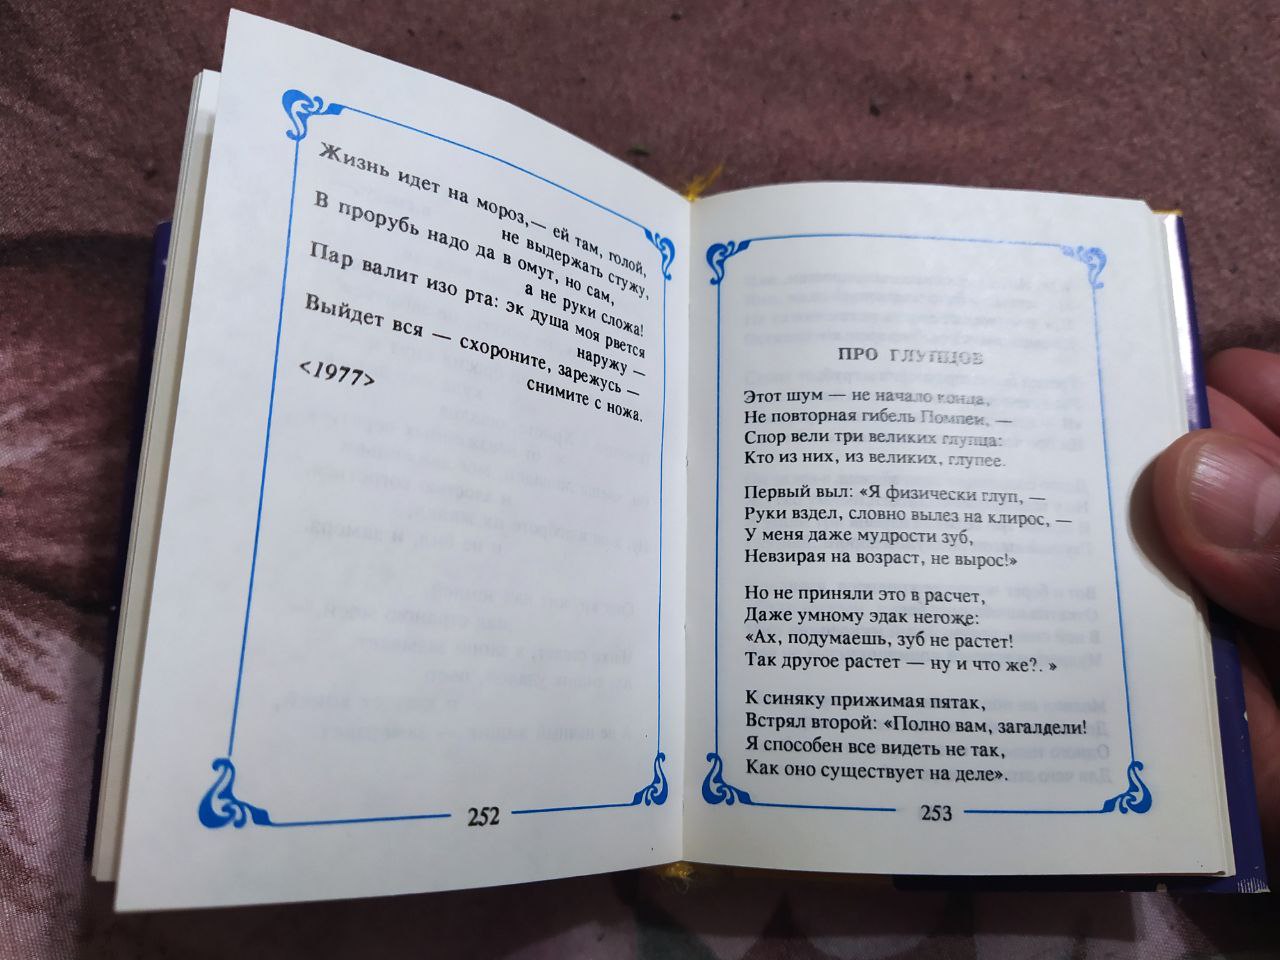 Жизнь идет на мороз,— ей там, голой,
не выдержать стужу,
В прорубь надо да в омут, но сам,
а не руки сложа!
Пар валит изо рта: эк душа моя рвется
наружу —
Выйдет вся — схороните, зарежусь —
снимите с ножа.
<1977>
252
ПРО ГЛУПЦОВ
Этот шум — не начало конца,
Не повторная гибель Помпеи, —
Спор вели три великих глупца:
Кто из них, из великих, глупее.
Первый выл: «Я физически глуп, —
Руки вздел, словно вылез на клирос, —
У меня даже мудрости зуб,
Невзирая на возраст, не вырос!»
Но не приняли это в расчет,
Даже умному эдак негоже:
«Ах, подумаешь, зуб не растет!
Так другое растет — ну и что же?. »
К синяку прижимая пятак,
Встрял второй: «Полно вам, загалдели!
Я способен все видеть не так,
Как оно существует на деле».
253